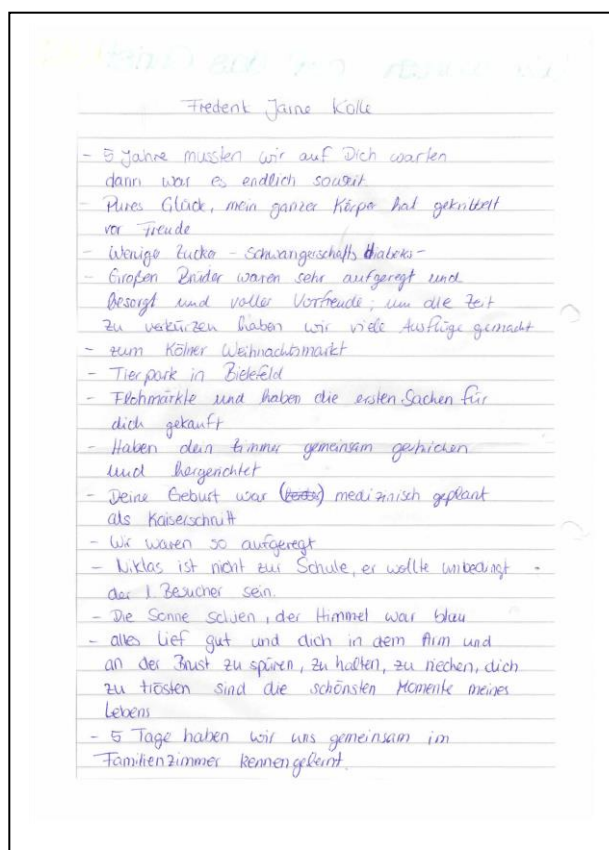 Frederik Jaine Kolle
- 5 Jahre mussten wir auf Dich warten
dann war es endlich soweit
- Pures Glück, mein ganzer Körper hat gekribbelt
vor Freude
- Wenige Zucker - Schwangerschafts diabetes -
- Großen Brüder waren sehr aufgeregt und
besorgt und voller Vorfreude; um die Zeit
zu verkürzen haben wir viele Ausflüge gemacht
- zum Kölner Weihnachtsmarkt
- Tierpark in Bielefeld
- Flohmärkte und haben die ersten Sachen für
dich gekauft
- Haben dein Zimmer gemeinsam gestrichen
und hergerichtet
- Deine Geburt war medizinisch geplant
als Kaiserschnitt
- Wir waren so aufgeregt
- Niklas ist nicht zur Schule, er wollte unbedingt
der 1. Besucher sein.
- Die Sonne schien, der Himmel war blau
- alles lief gut und dich in dem Arm und
an der Brust zu spüren, zu halten, zu riechen, dich
zu trösten sind die schönsten Momente meines
Lebens
- 5 Tage haben wir uns gemeinsam im
Familienzimmer kennengelernt.